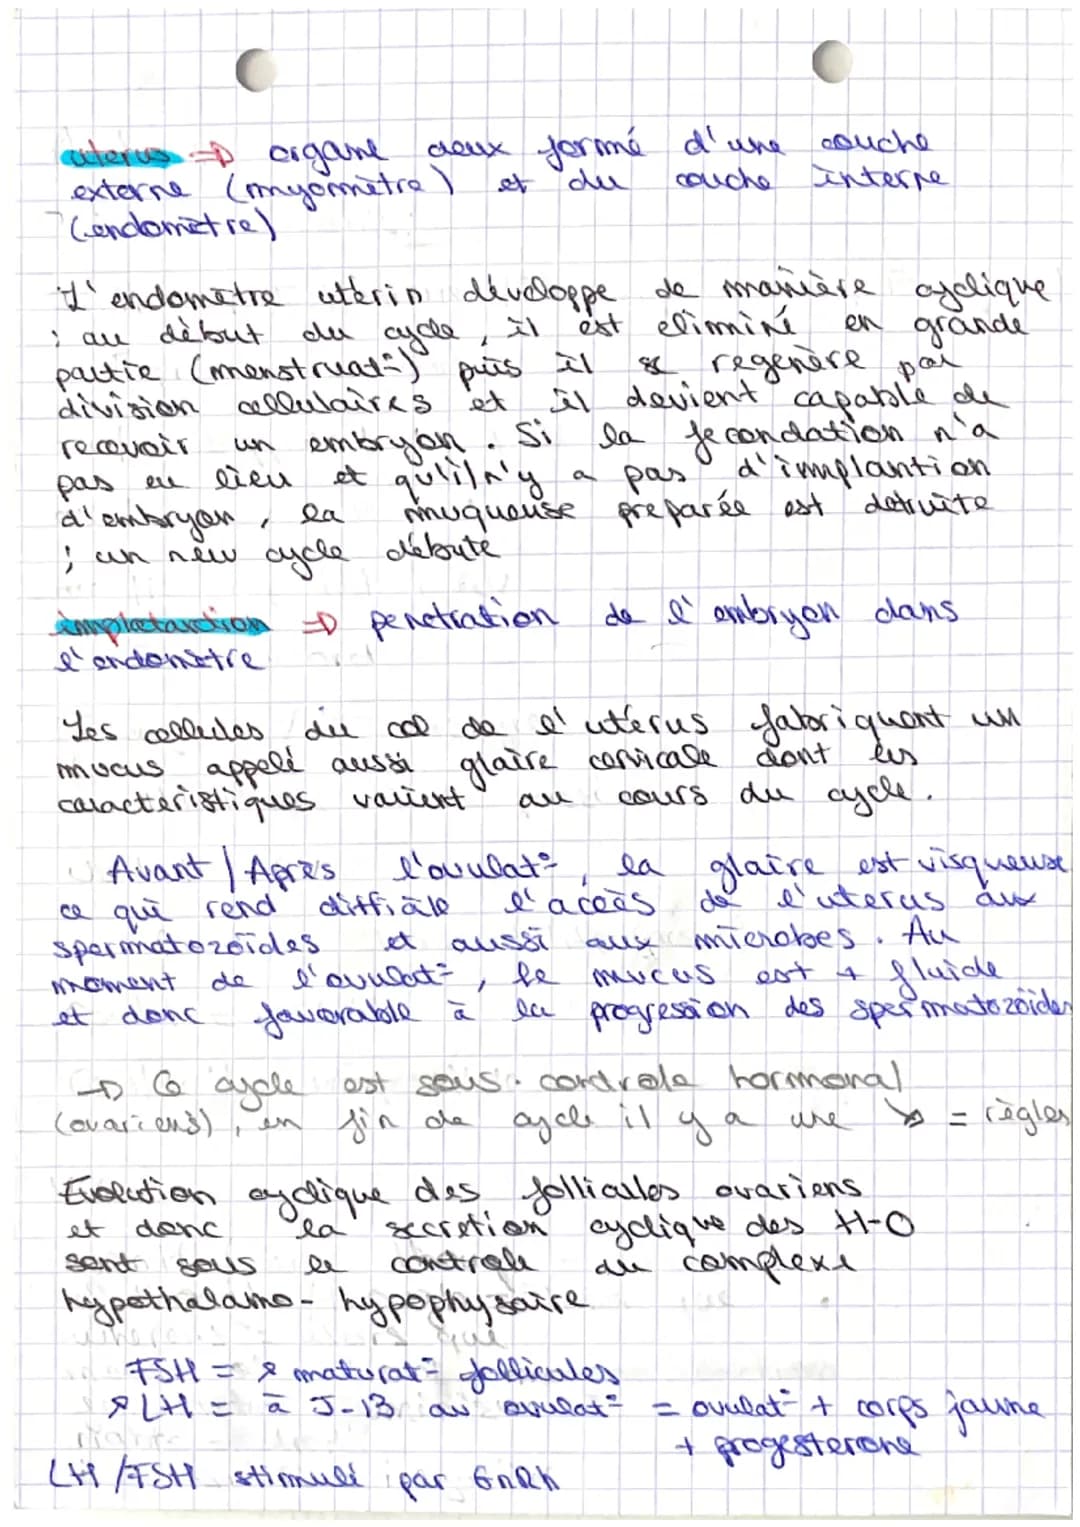 uterus => organe creux formé d'une couche
externe (myomètre) et du couche interne
(endomètre)
L'endomètre utérin développe de manière cyclique
; au début du cycle, il est eliminé en grande
partie (menstruat°) puis il se regenère par
division cellulaires et il devient capable de
recevoir un embryon. Si la fecondation n'a
pas eu lieu et qu'il n'y a pas d'implantion
d'embryon, la muqueuse preparée est detruite
; un new cycle débute
implatantion => penetration de l'embryon dans
l'endomètre
Les cellules du col de l'utérus fabriquent un
mucus appelé aussi glaire cervicale dont les
caracteristiques varient au cours du cycle.
Avant / Après l'ovulat°, la glaire est visqueuse
ce qui rend difficile l'accès de l'uterus aux
spermatozoïdes et aussi aux microbes. Au
moment de l'ovulat°, le mucus est + fluide
et donc favorable à la progression des spermatozoïdes
-> Ce cycle est sous contrôle hormonal
(ovariens), en fin de cycle il y a une ↘ = règles
Evolution cyclique des follicules ovariens
et donc la secretion cyclique des H-O
sont sous le controle du complexe
hypothalamo-hypophysaire
FSH = ↗ maturat° follicules
↗ LH = à J-13 av ovulat° = ovulat° + corps jaune
+ progesterone
LH/FSH stimulé par GnRh